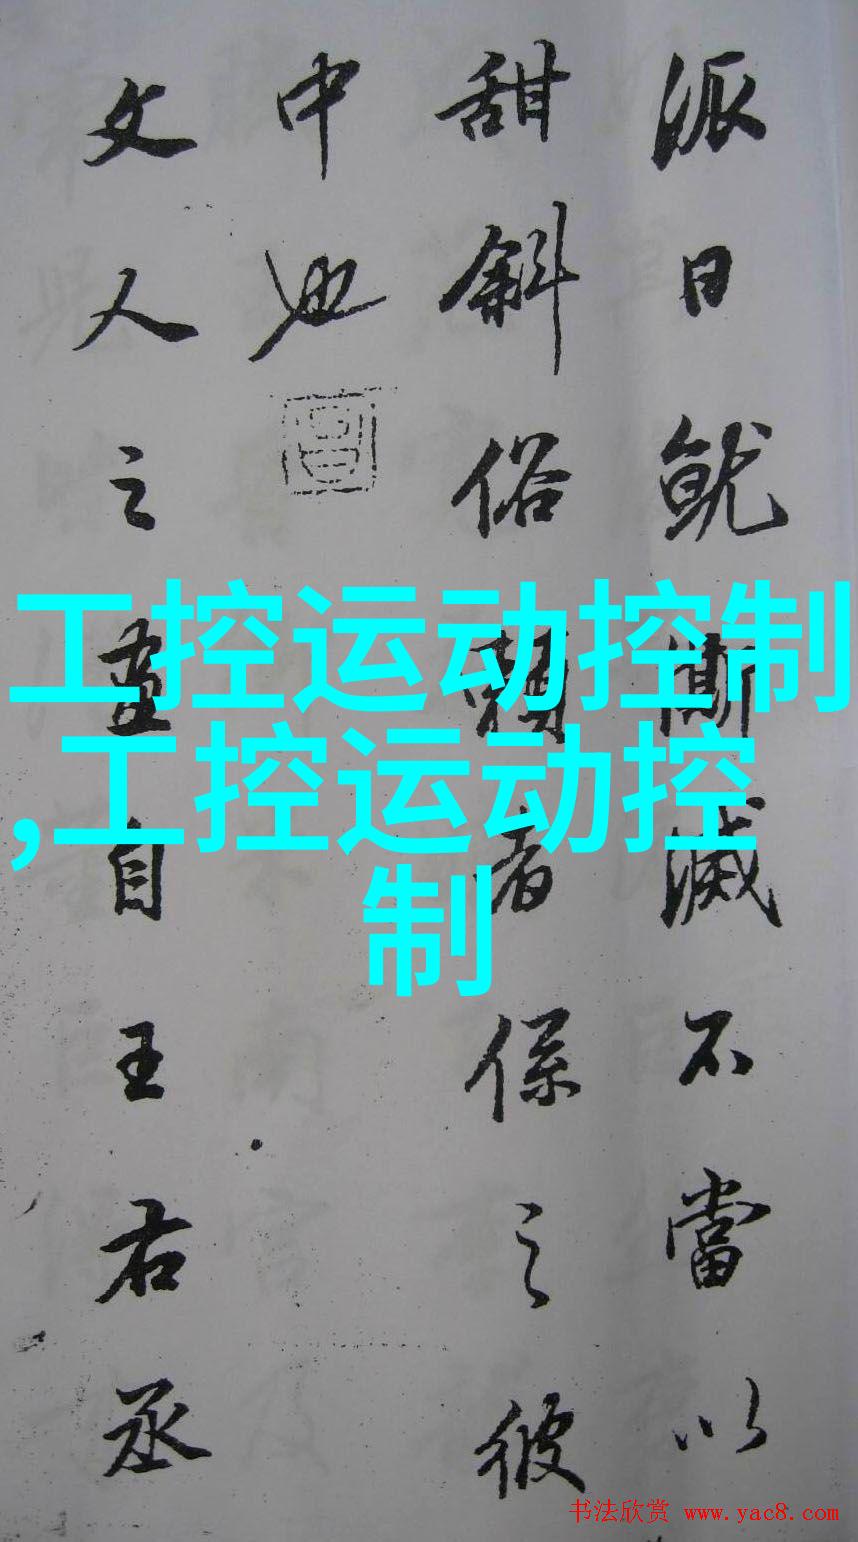 派日就澌滅不當以
甜斜俗賴者係之彼
中也
文人之畫自王右丞
工控运动控制
,工控运动控
制
书法欣赏 www.yac8.com